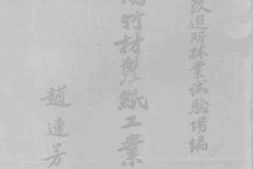 改進所林業試驗場編
竹材製紙工業
趙連芳